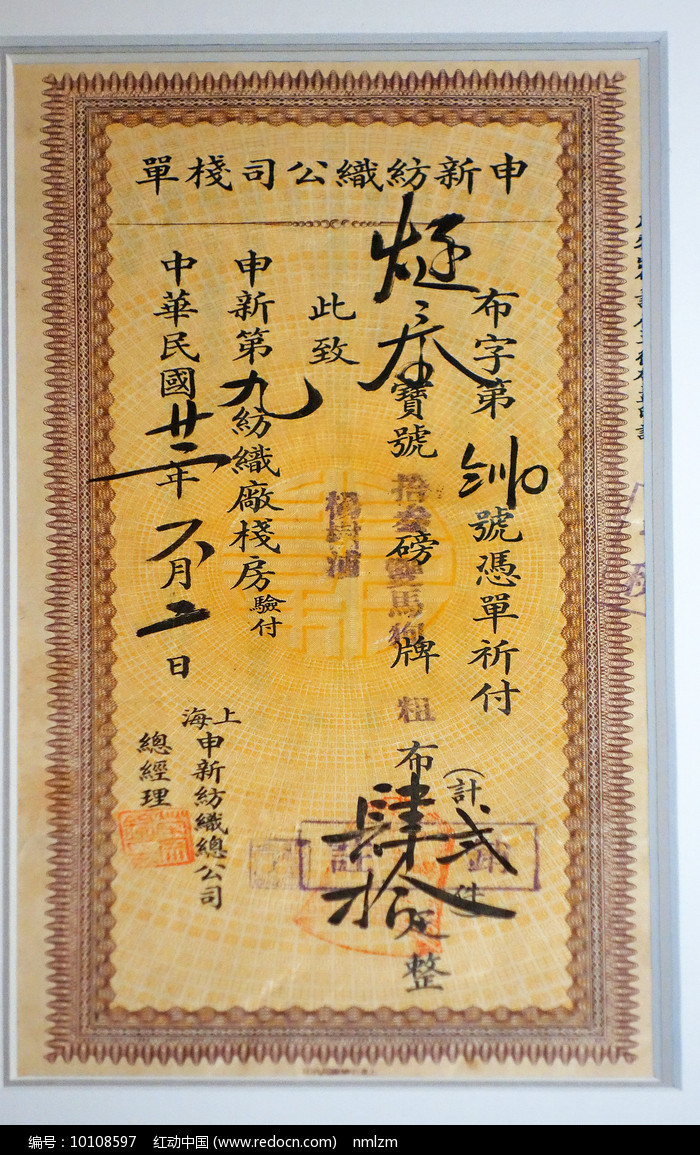 申新紡織公司棧單
布字第 號憑單祈付
寶號
拾叁磅 雙馬狗 牌 粗 布
(計 弍 件)
肆拾疋整
此致
楊樹浦
申新第九紡織廠棧房驗付
中華民國廿二年 六月 二日
上海申新紡織總公司
總經理
註銷
编号：10108597 红动中国 (www.redocn.com) nmlzm